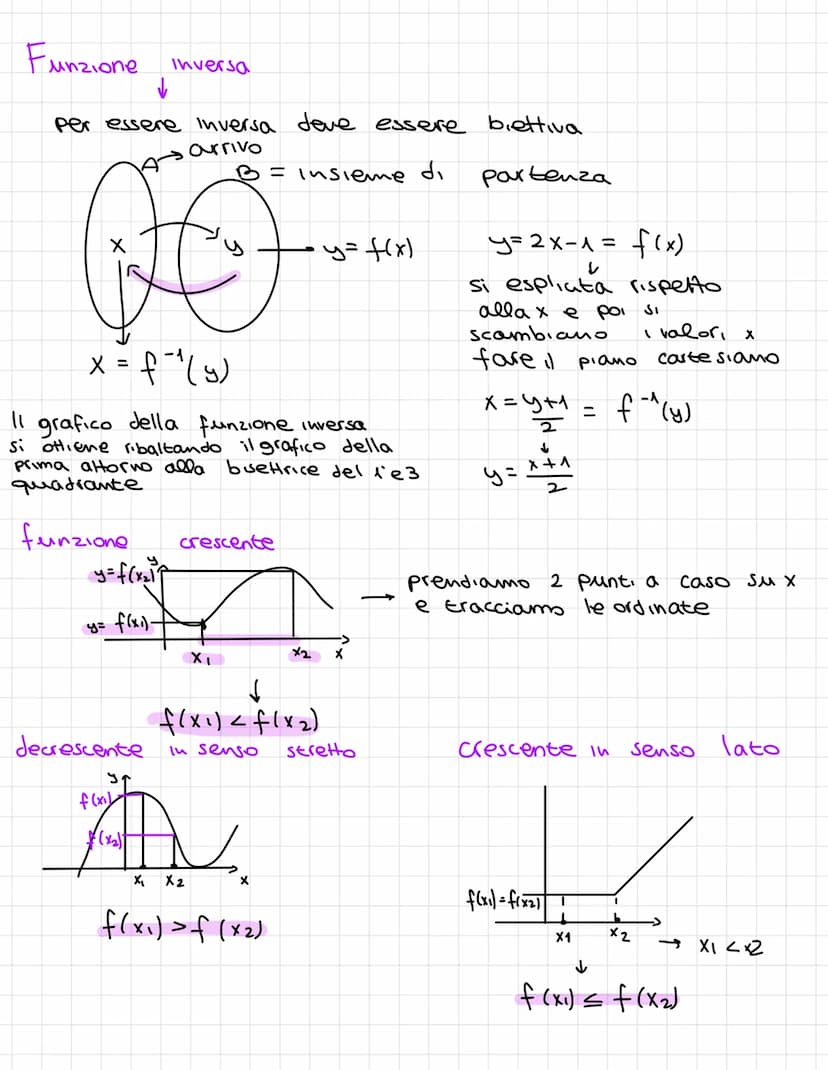 Funzione inversa
per essere inversa deve essere biettiva
A → arrivo
B = insieme di partenza
x
y
y = f(x)
x = f⁻¹(y)
y = 2x-1 = f(x)
si esplicita rispetto
alla x e poi si
scambiano i valori x
fare il piano cartesiano
x = y+1/2 = f⁻¹(y)
y = x+1/2
Il grafico della funzione inversa
si ottiene ribaltando il grafico della
prima attorno alla bisettrice del 1°e3
quadrante
funzione crescente
y
y=f(x₂)
y= f(x₁)
x₁
x₂
x
→ prendiamo 2 punti a caso su x
e tracciamo le ordinate
f(x₁) < f(x₂)
decrescente in senso stretto
y
f(x₁)
f(x₂)
x₁
x₂
x
f(x₁) > f(x₂)
crescente in senso lato
f(x₁) = f(x₂)
x1
x₂
→ x₁ < x2
f(x₁) ≤ f(x₂)